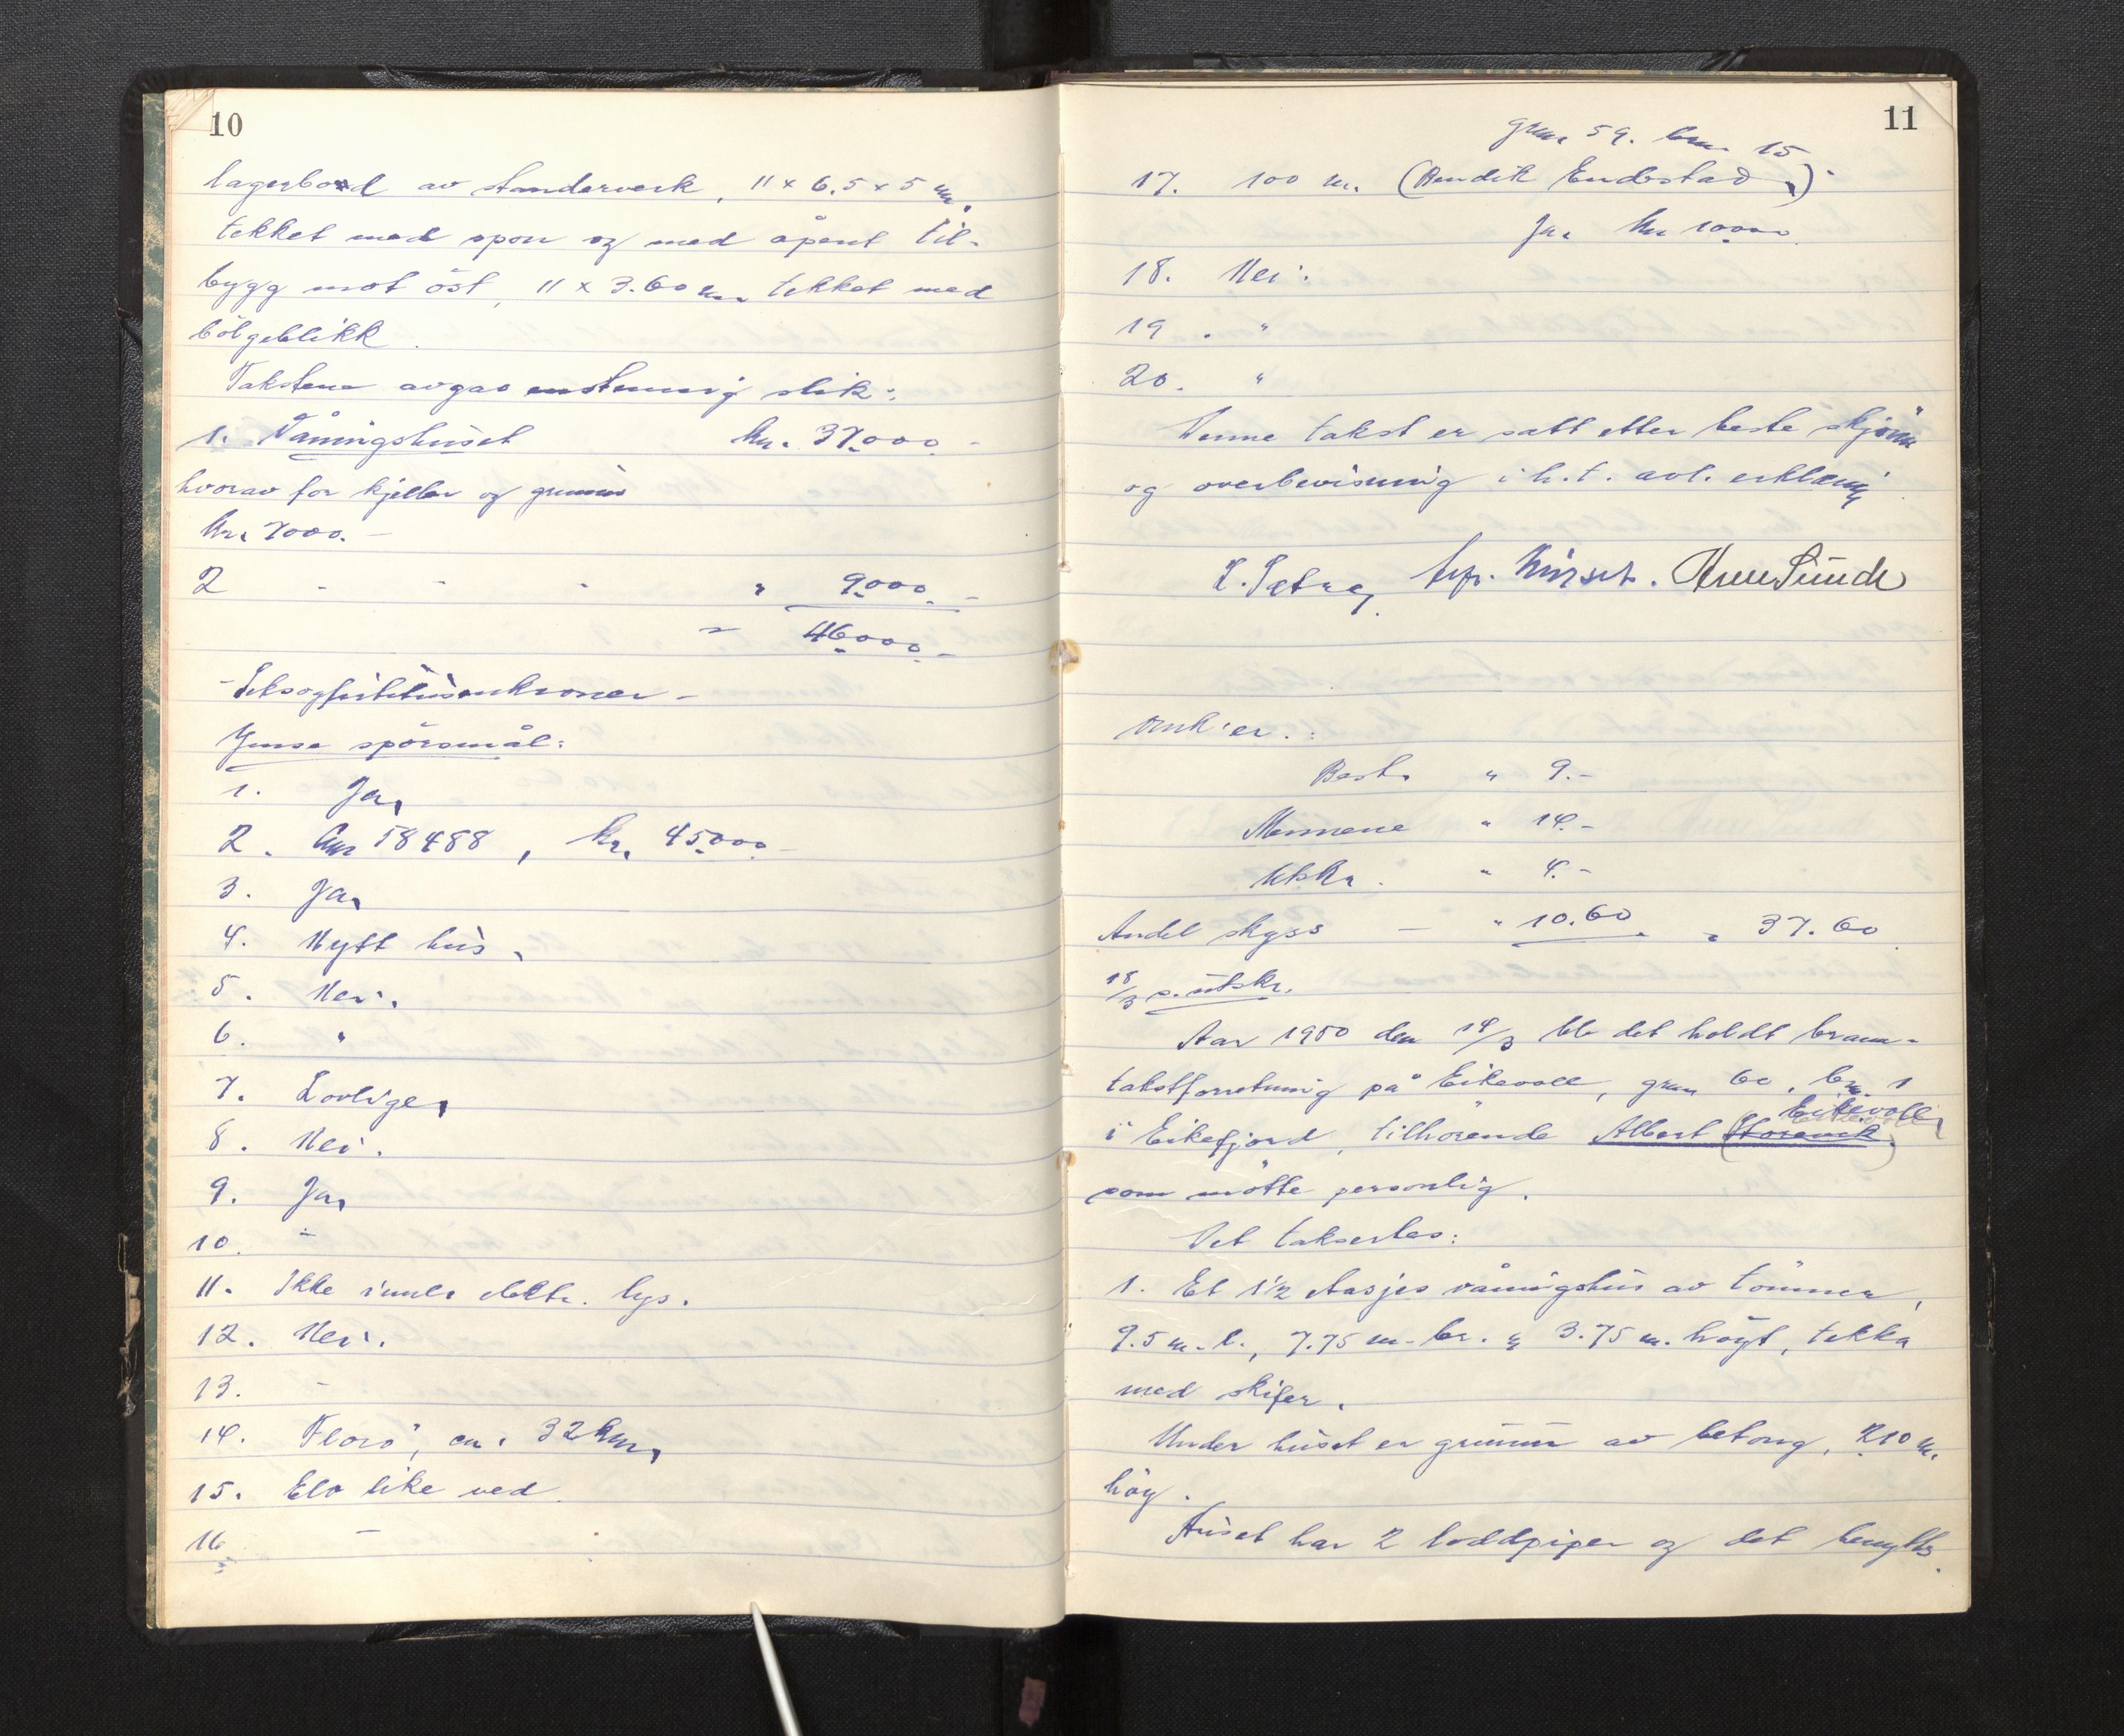 10
lagerbord av standerverk, 11 x 6.5 x 5 m.
tekket med spon og med åpent til-
bygg mot öst, 11 x 3.60 m. tekket med
bölgeblikk.
Takstene avgas enstemmig slik:
1. Våningshuset kr. 37000.-
hvorav for kjeller og grunn
kr. 7000.-
2 - - - " 9000.-
" 46000.-
-Seksogførtitusenkroner-
Ymse spörsmål:
1. Ja,
2. 58488, kr. 45000.-
3. Ja,
4. Nytt hus.
5. Nei.
6. "
7. Lovlige,
8. Nei.
9. Ja,
10. "
11. Ikke innl. elektr. lys.
12. Nei.
13. -
14. Florö, ca. 32 km,
15. Elv like ved.
16 -
11
gnr 59. bnr. 15
17. 100 m. (Bendik Endestad.)
Ja, kr 10000
18. Nei.
19. "
20. "
Denne takst er satt etter beste skjönn
og overbevisning i h.t. avl. erklæring
Sunde
Omk.er.:
Best. " 9.-
Mennene " 14.-
Utskr. " 4.-
Andel skyss - " 10.60 " 37.60
18/3 s. utskr.
Aar 1950 den 14/3 ble det holdt brann-
takstforretning på Eikevoll, gnr 60, bnr. 1
Eikevoll,
i Eikefjord, tilhörende Albert (Storevik)
som mötte personlig.
Det takseries:
1. Et 1 1/2 etasjes våningshus av tömmer,
9.5 m. l., 7.75 m. br. og 3.75 m. högt, tekka
med skifer.
Under huset er grunn av betong, 2.10 m.
höy.
Huset har 2 loddpiper og det benyttes.